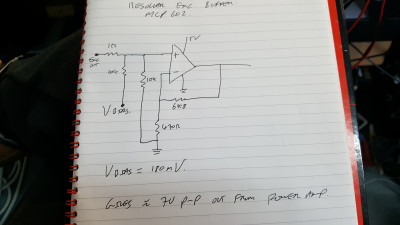 Resolver Exc Buffer
MCP 602.
5V
10k
Exc
out
10k
+
-
VBIAS.
680R
VBIAS = 180mV.
Gives ≈ 7V p-p out from power amp.